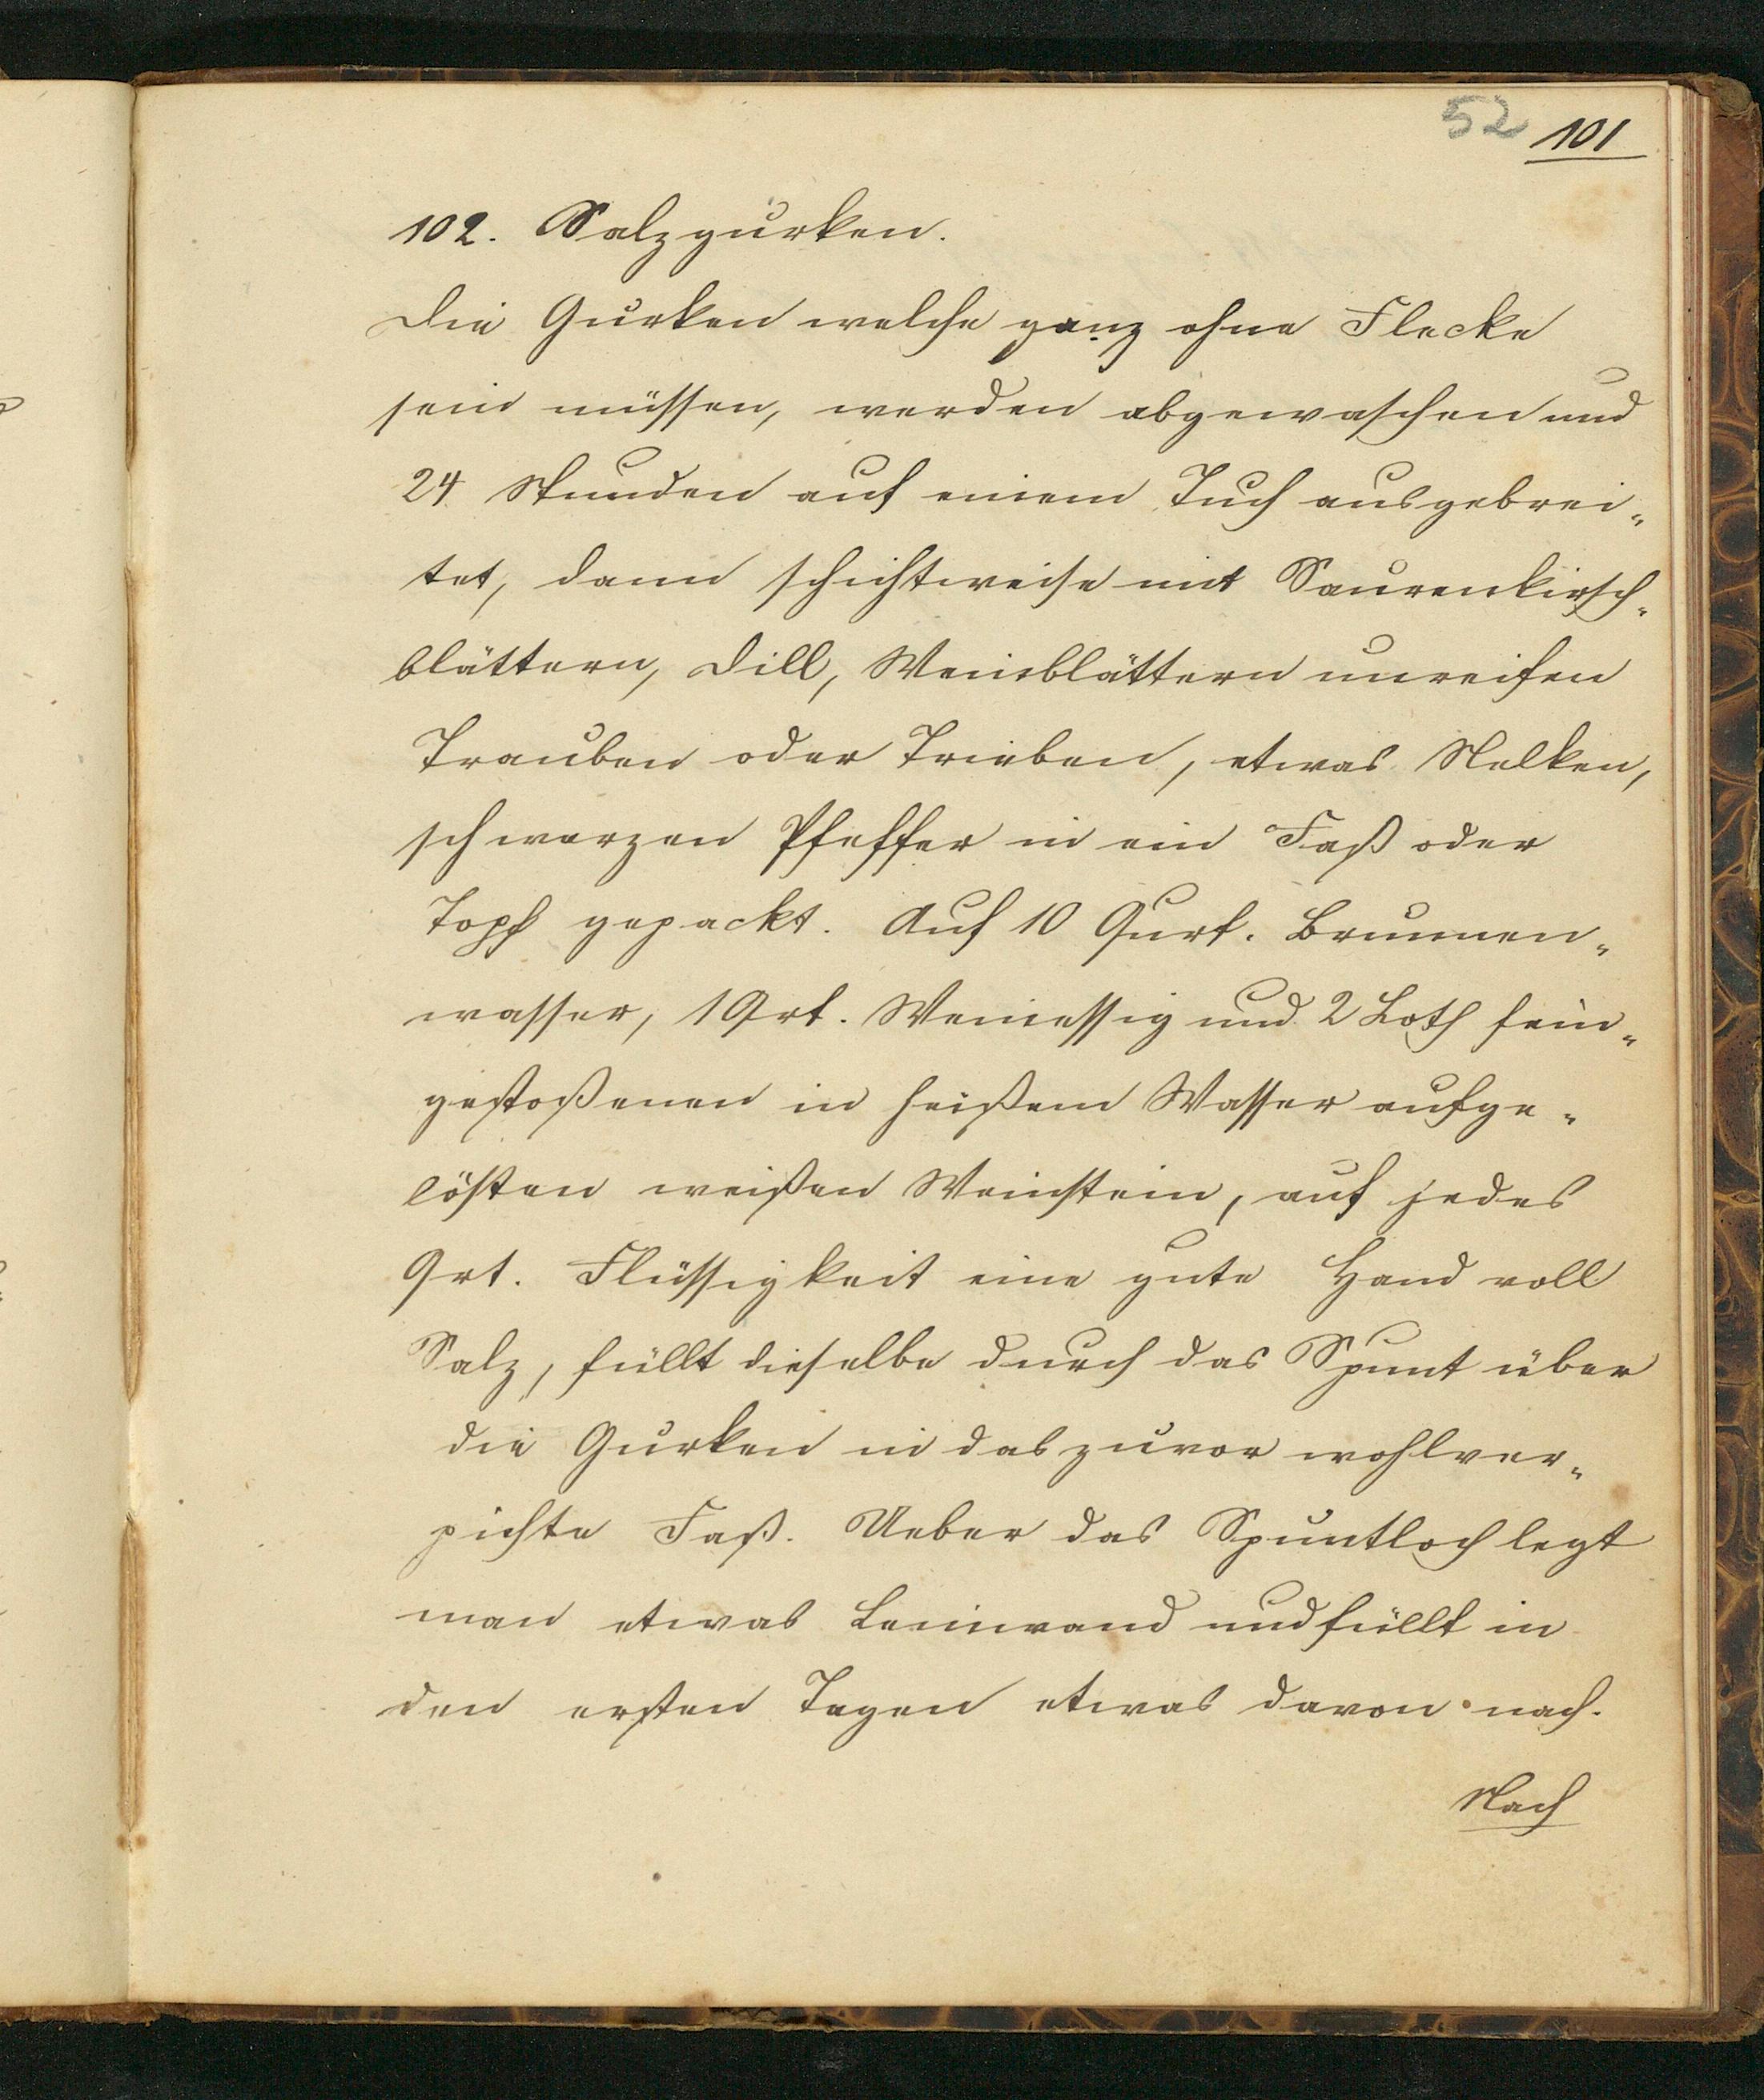 52 101
102. Salzgurken.
Die Gurken welche ganz ohne Flecke
sein müssen, werden abgewaschen und
24 Stunden auf einem Tuch ausgebrei„
tet, dann schichtweise mit Saurenkirsch„
blättern, Dill, Weinblättern unreifen
Trauben oder Trieben, etwas Nelken,
schwarzen Pfeffer in ein Faß oder
Topf gepackt. Auf 10 Qurt. Brunnen„
wasser, 1 Qrt. Weinessig und 2 Loth fein„
gestoßenen in heißem Wasser aufge„
lösten weißen Weinstein, auf jedes
Qrt. Flüssigkeit eine gute Hand voll
Salz, füllt dieselbe durch das Spunt über
die Gurken in das zuvor wohlver„
pichte Faß. Ueber das Spuntloch legt
man etwas Leinwand und füllt in
den ersten Tagen etwas davon nach.
Nach